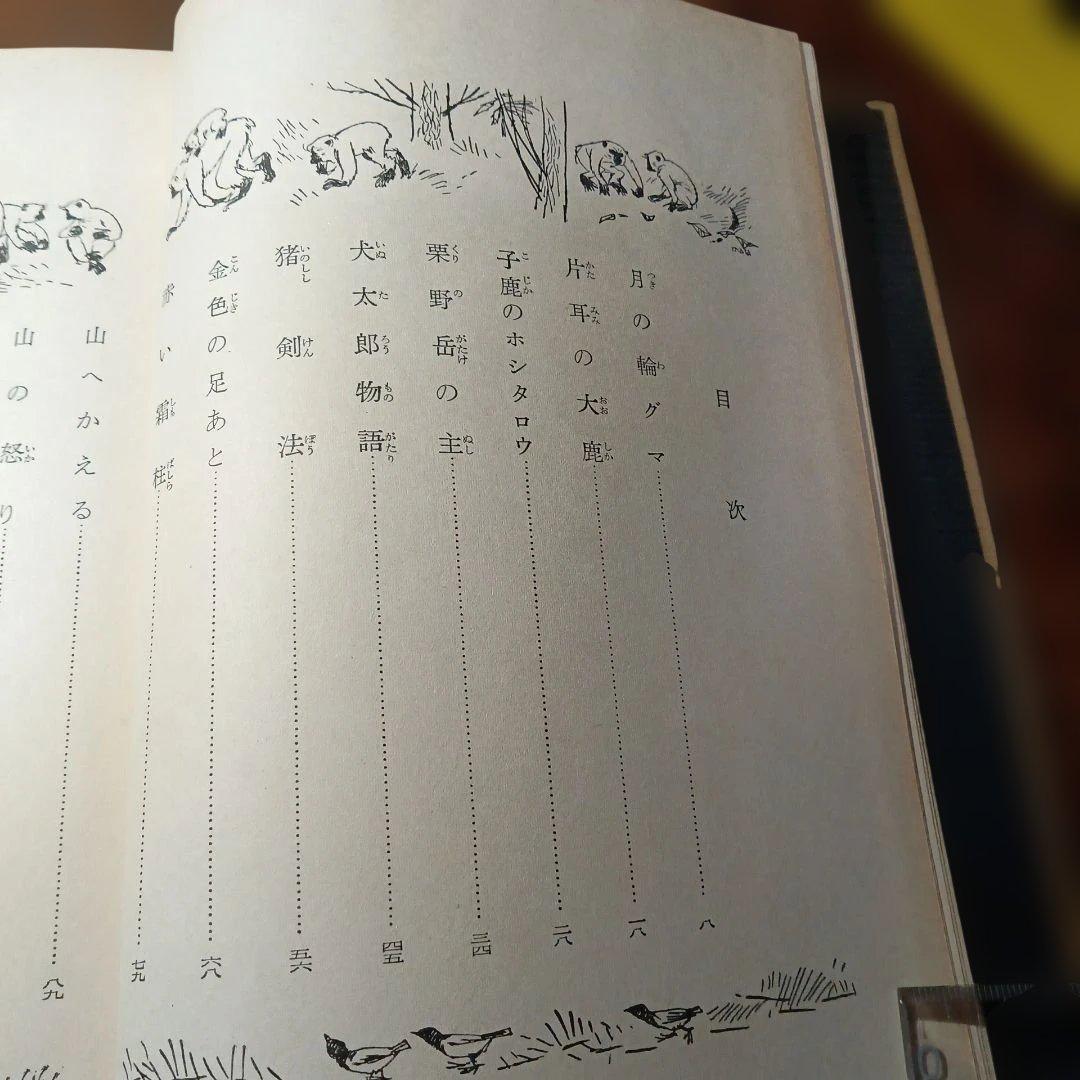 目次
月の輪グマ 八
片耳の大鹿 一八
子鹿のホシタロウ 二八
栗野岳の主 三四
犬太郎物語 四五
猪剣法 五六
金色の足あと 六八
赤い霜柱 七九
山へかえる 八九
山の怒り